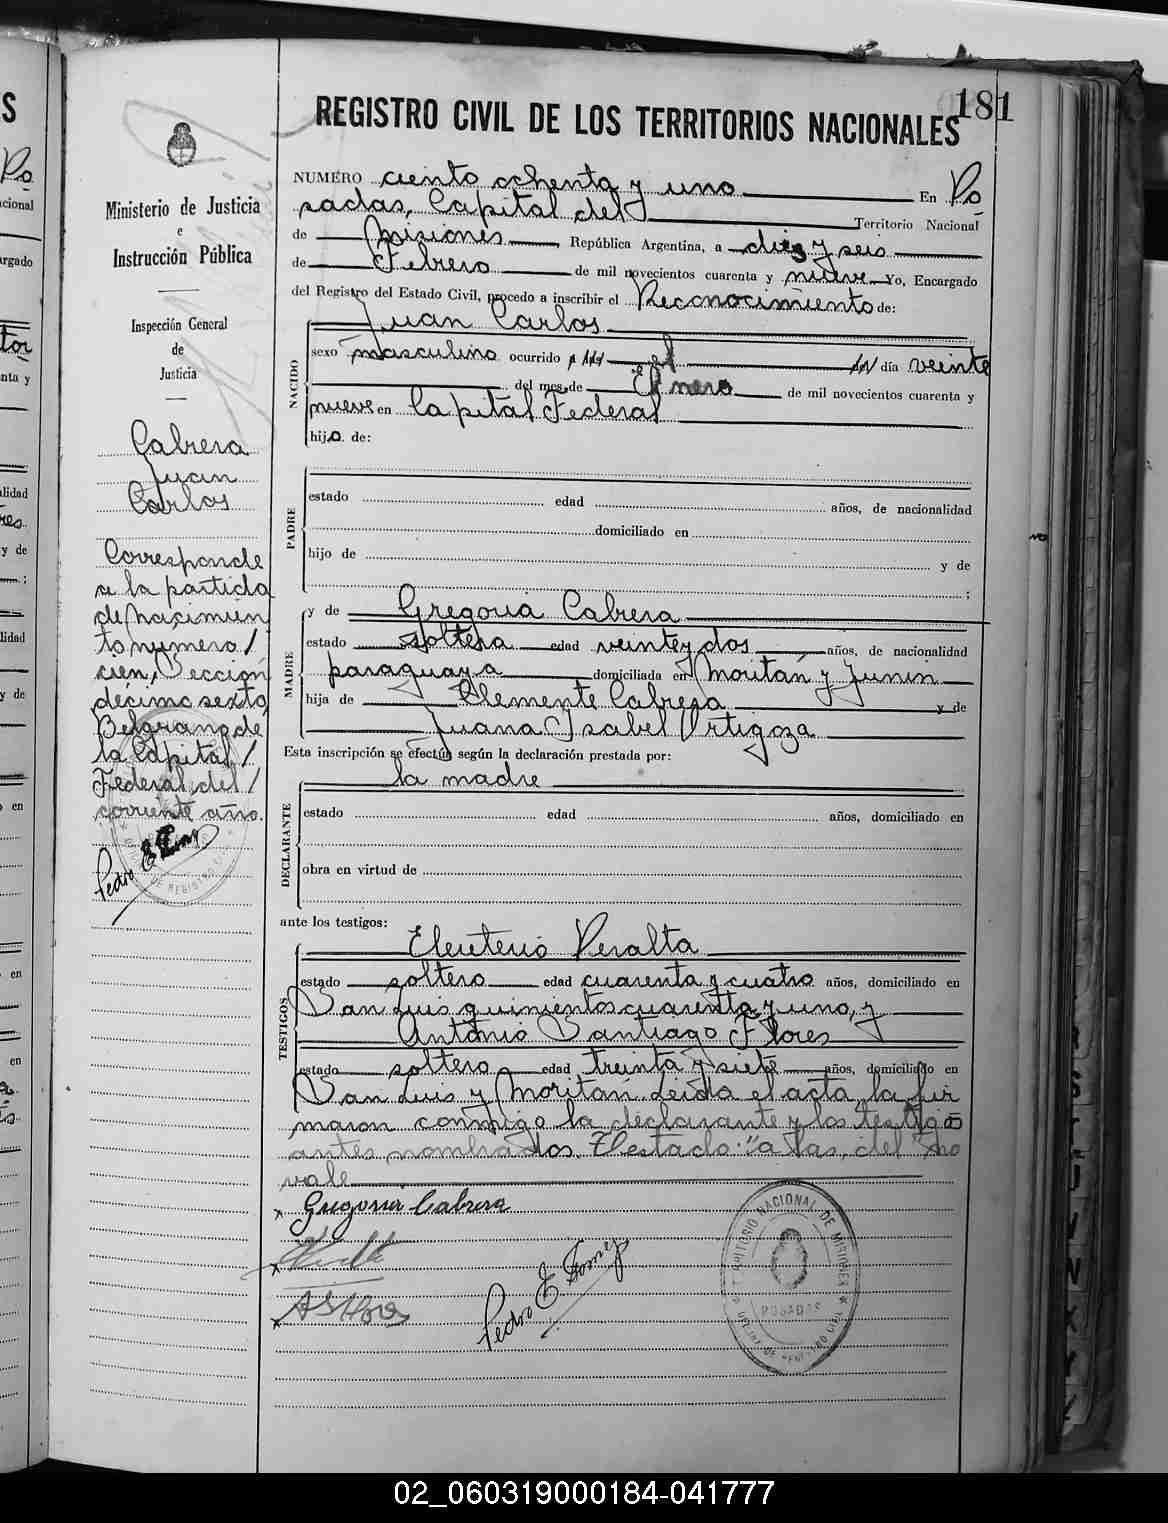 181
REGISTRO CIVIL DE LOS TERRITORIOS NACIONALES
NUMERO ciento ochenta y uno En Po
sadas, Capital del Territorio Nacional
de Misiones República Argentina, a diez y seis
de Febrero de mil novecientos cuarenta y nueve Yo, Encargado
del Registro del Estado Civil, procedo a inscribir el Reconocimiento de:
Juan Carlos
NACIDO
sexo masculino ocurrido el día veinte
del mes de Enero de mil novecientos cuarenta y
nueve en Capital Federal
hijo de:
PADRE
estado edad años, de nacionalidad
domiciliado en
hijo de y de
;
MADRE
y de Gregoria Cabrera
estado soltera edad veinte y dos años, de nacionalidad
paraguaya domiciliada en Moritán y Junin
hija de Clemente Cabrera y de
Juana Isabel Ortigoza
Esta inscripción se efectúa según la declaración prestada por:
la madre
DECLARANTE
estado edad años, domiciliado en
obra en virtud de
ante los testigos:
TESTIGOS
Eleuterio Peralta
estado soltero edad cuarenta y cuatro años, domiciliado en
San Luis quinientos cuarenta y uno, y
Antonio Santiago Flores
estado soltero edad treinta y siete años, domiciliado en
San Luis y Moritán. Leida el acta, la fir
maron conmigo la declarante y los testigos
antes nombrados. Testado: "a las, del" no
vale
Gregoria Cabrera
Pedro E. Gomez
TERRITORIO NACIONAL DE MISIONES
POSADAS
OFICINA DE REGISTRO CIVIL
Ministerio de Justicia
e
Instrucción Pública
Inspección General
de
Justicia
Cabrera
Juan
Carlos
Corresponde
a la partida
de nacimien
to numero
cien, Sección
décimo sexta
Belgrano de
la Capital
Federal, del
corriente año.
Pedro E. Gomez
02_060319000184-041777